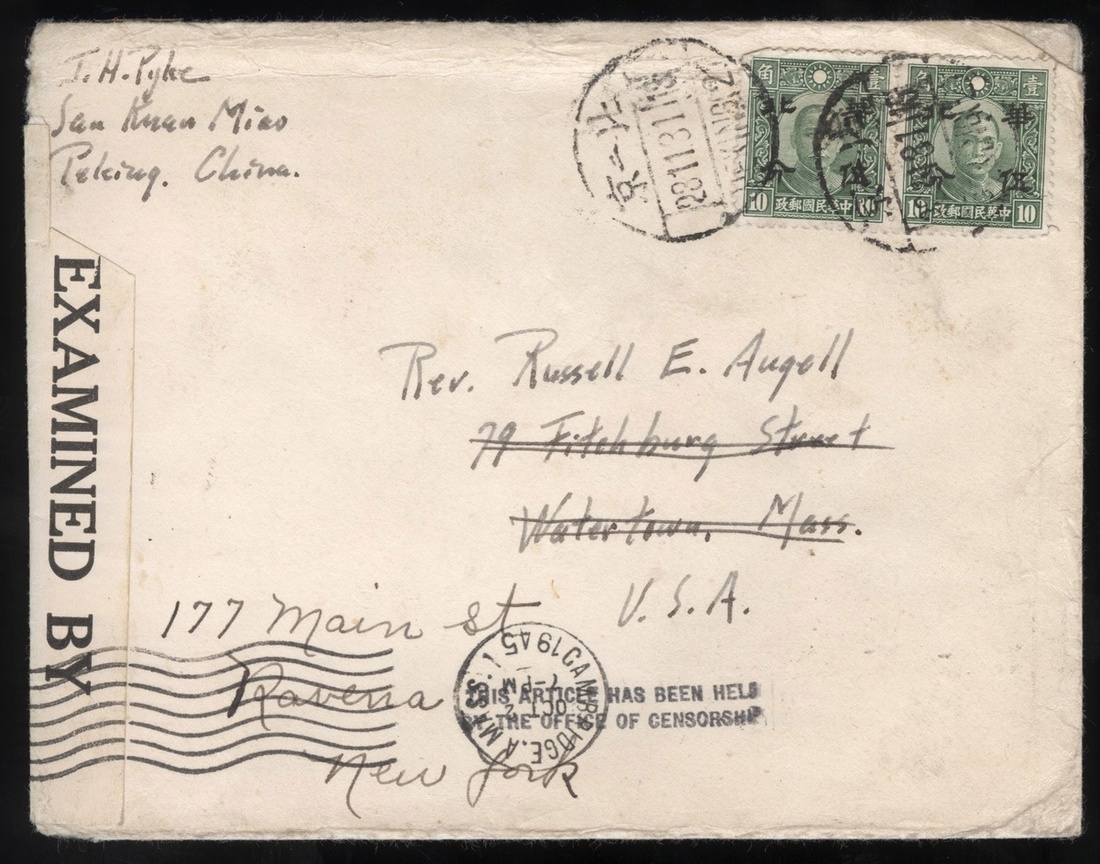 J. H. Pyke
San Kuan Miao
Peking, China.
北京
壹角
華北
伍分
10 中華民國郵政 10
壹角
華北
伍分
10 中華民國郵政 10
EXAMINED BY
Rev. Russell E. Augell
79 Fitchburg Street
Watertown, Mass.
U. S. A.
177 Main St
Ravena
New York
CAMBRIDGE. A MASS. 1
OCT 2
7-PM
1945
THIS ARTICLE HAS BEEN HELD
BY THE OFFICE OF CENSORSHIP